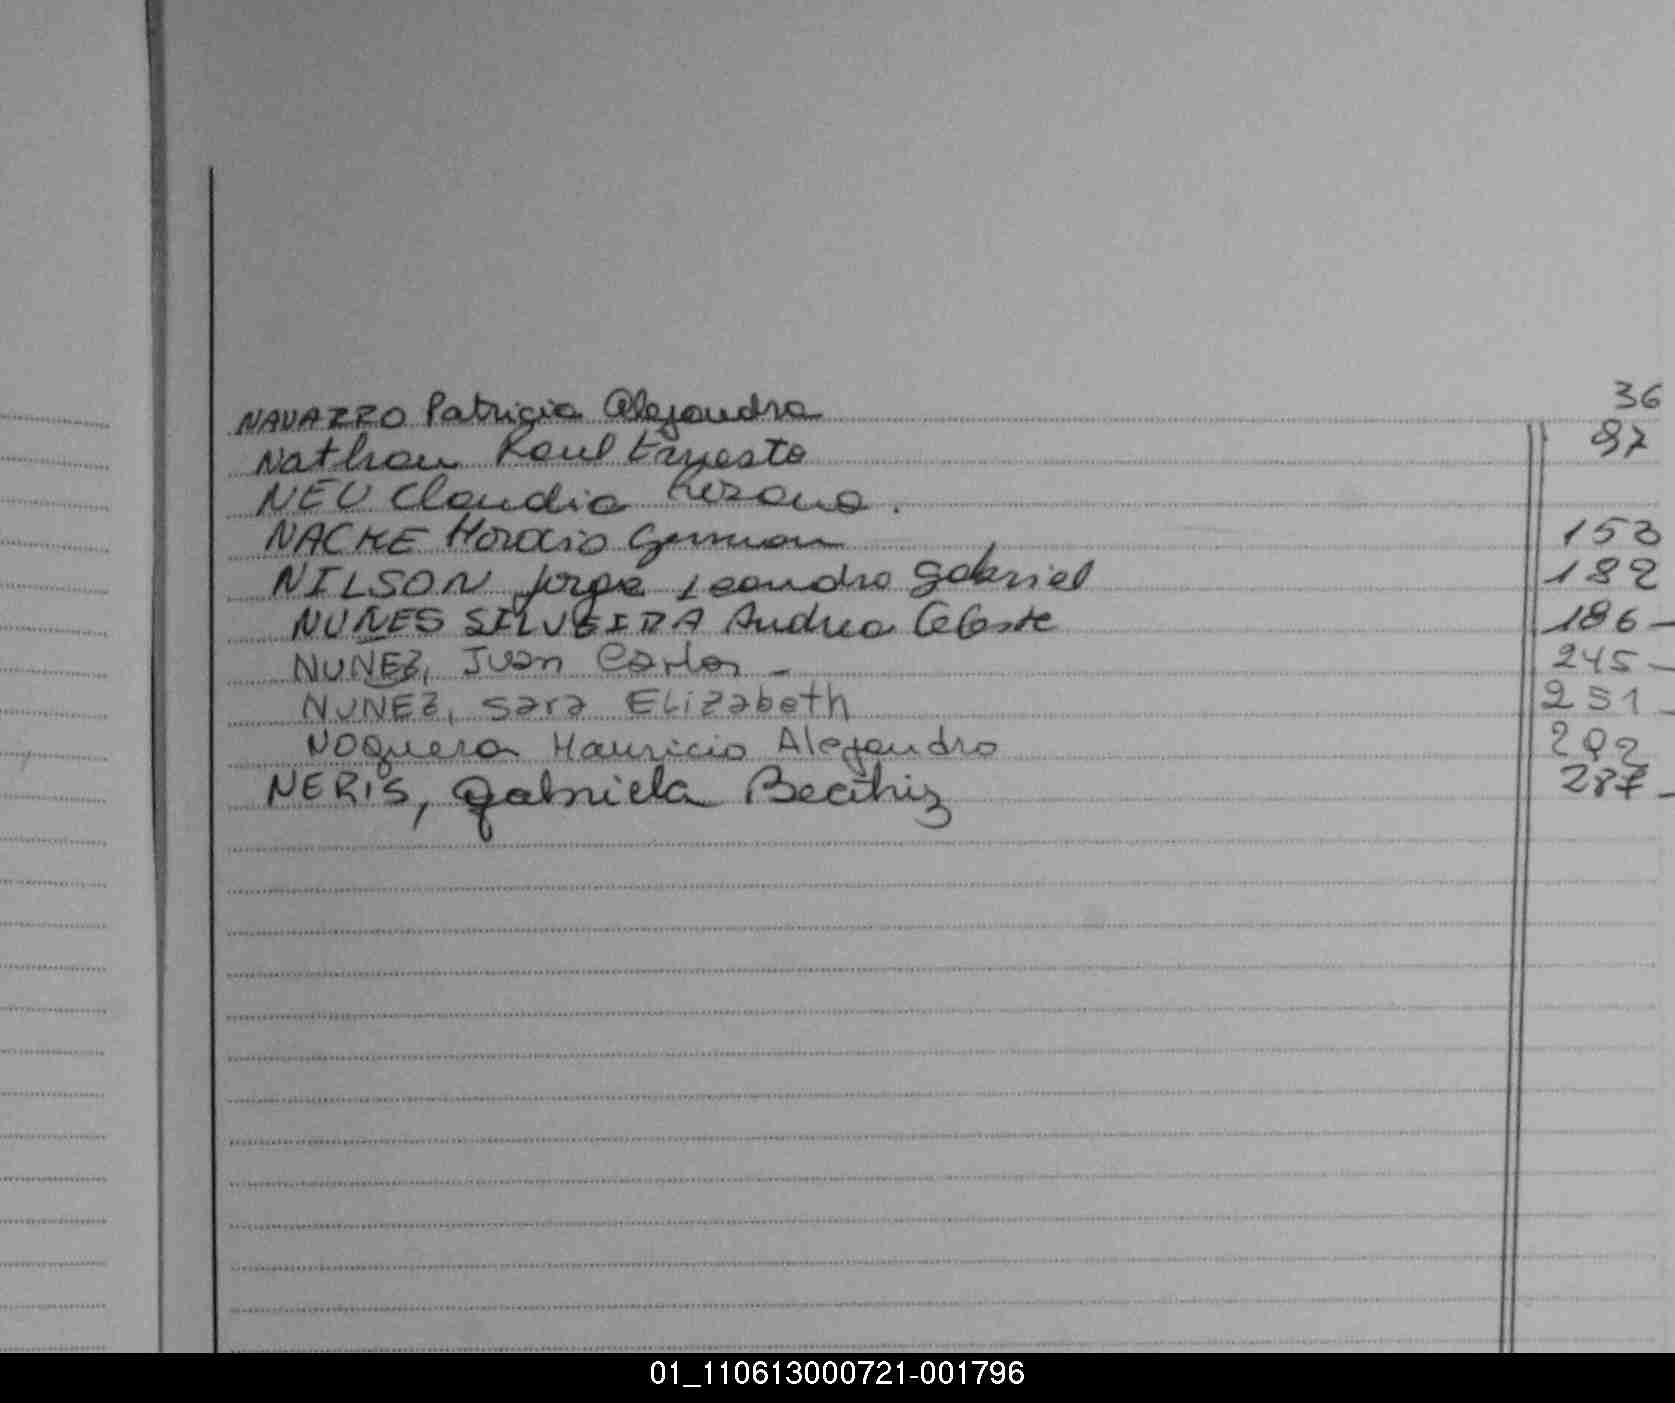 NAVARRO Patricia Alejandra 36
Nathan Raul Ernesto 97
NEU Claudia Rosana.
NACKE Horacio German 153
NILSON Jorge Leandro Gabriel 182
NUÑES SILVEIRA Andrea Celeste 186-
NUÑEZ, Juan Carlos - 245-
NUNEZ, Sara Elizabeth 251-
Noguera Mauricio Alejandro 292
NERIS, Gabriela Beatriz 287-
01_110613000721-001796